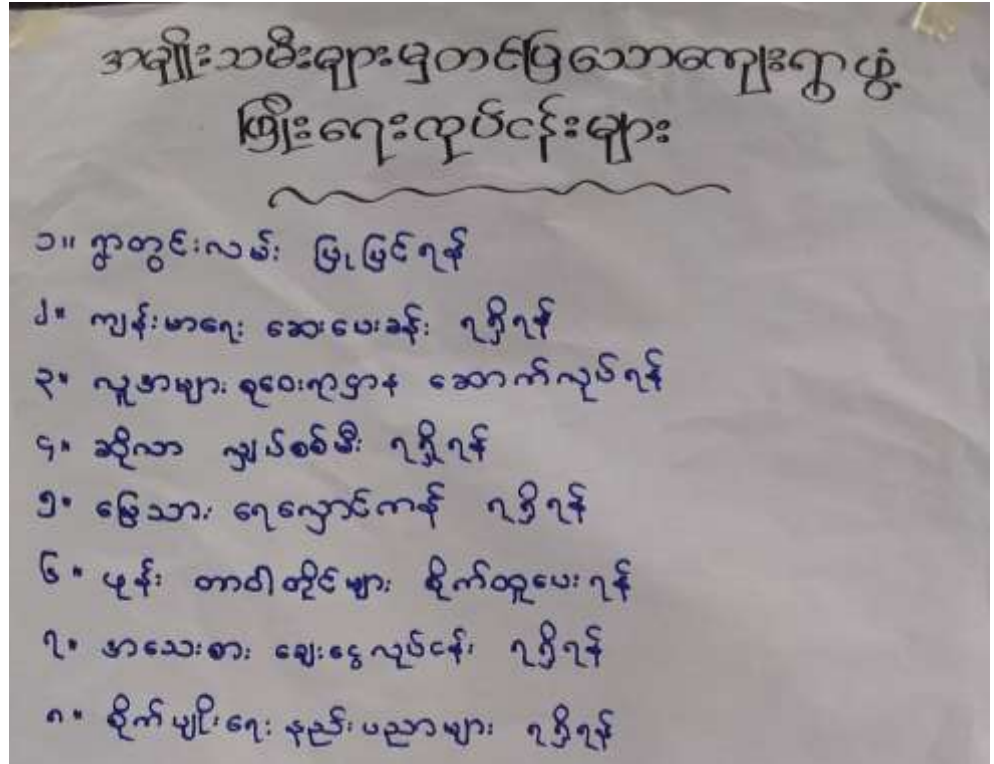 အမျိုးသမီးများမှတင်ပြသောကျေးရွာဖွံ့
ဖြိုးရေးလုပ်ငန်းများ
၁။ ရွာတွင်းလမ်း ပြုပြင်ရန်
၂။ ကျန်းမာရေး ဆေးပေးခန်း ရရှိရန်
၃။ လူအများ စုဝေးရာဌာန ဆောက်လုပ်ရန်
၄။ ဆိုလာ လျှပ်စစ်မီး ရရှိရန်
၅။ မြေသား ရေလှောင်ကန် ရရှိရန်
၆။ ဖုန်း တာဝါတိုင်များ စိုက်ထူပေးရန်
၇။ အသေးစား ချေးငွေလုပ်ငန်း ရရှိရန်
၈။ စိုက်ပျိုးရေး နည်းပညာများ ရရှိရန်